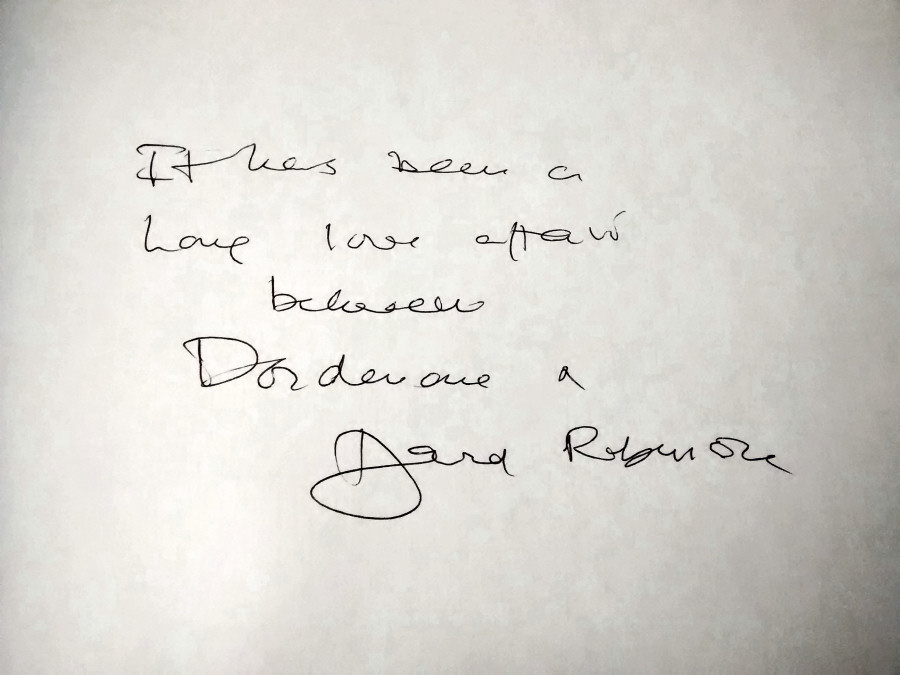 It has been a
long love affair
between
Dordogne &
David Robinson